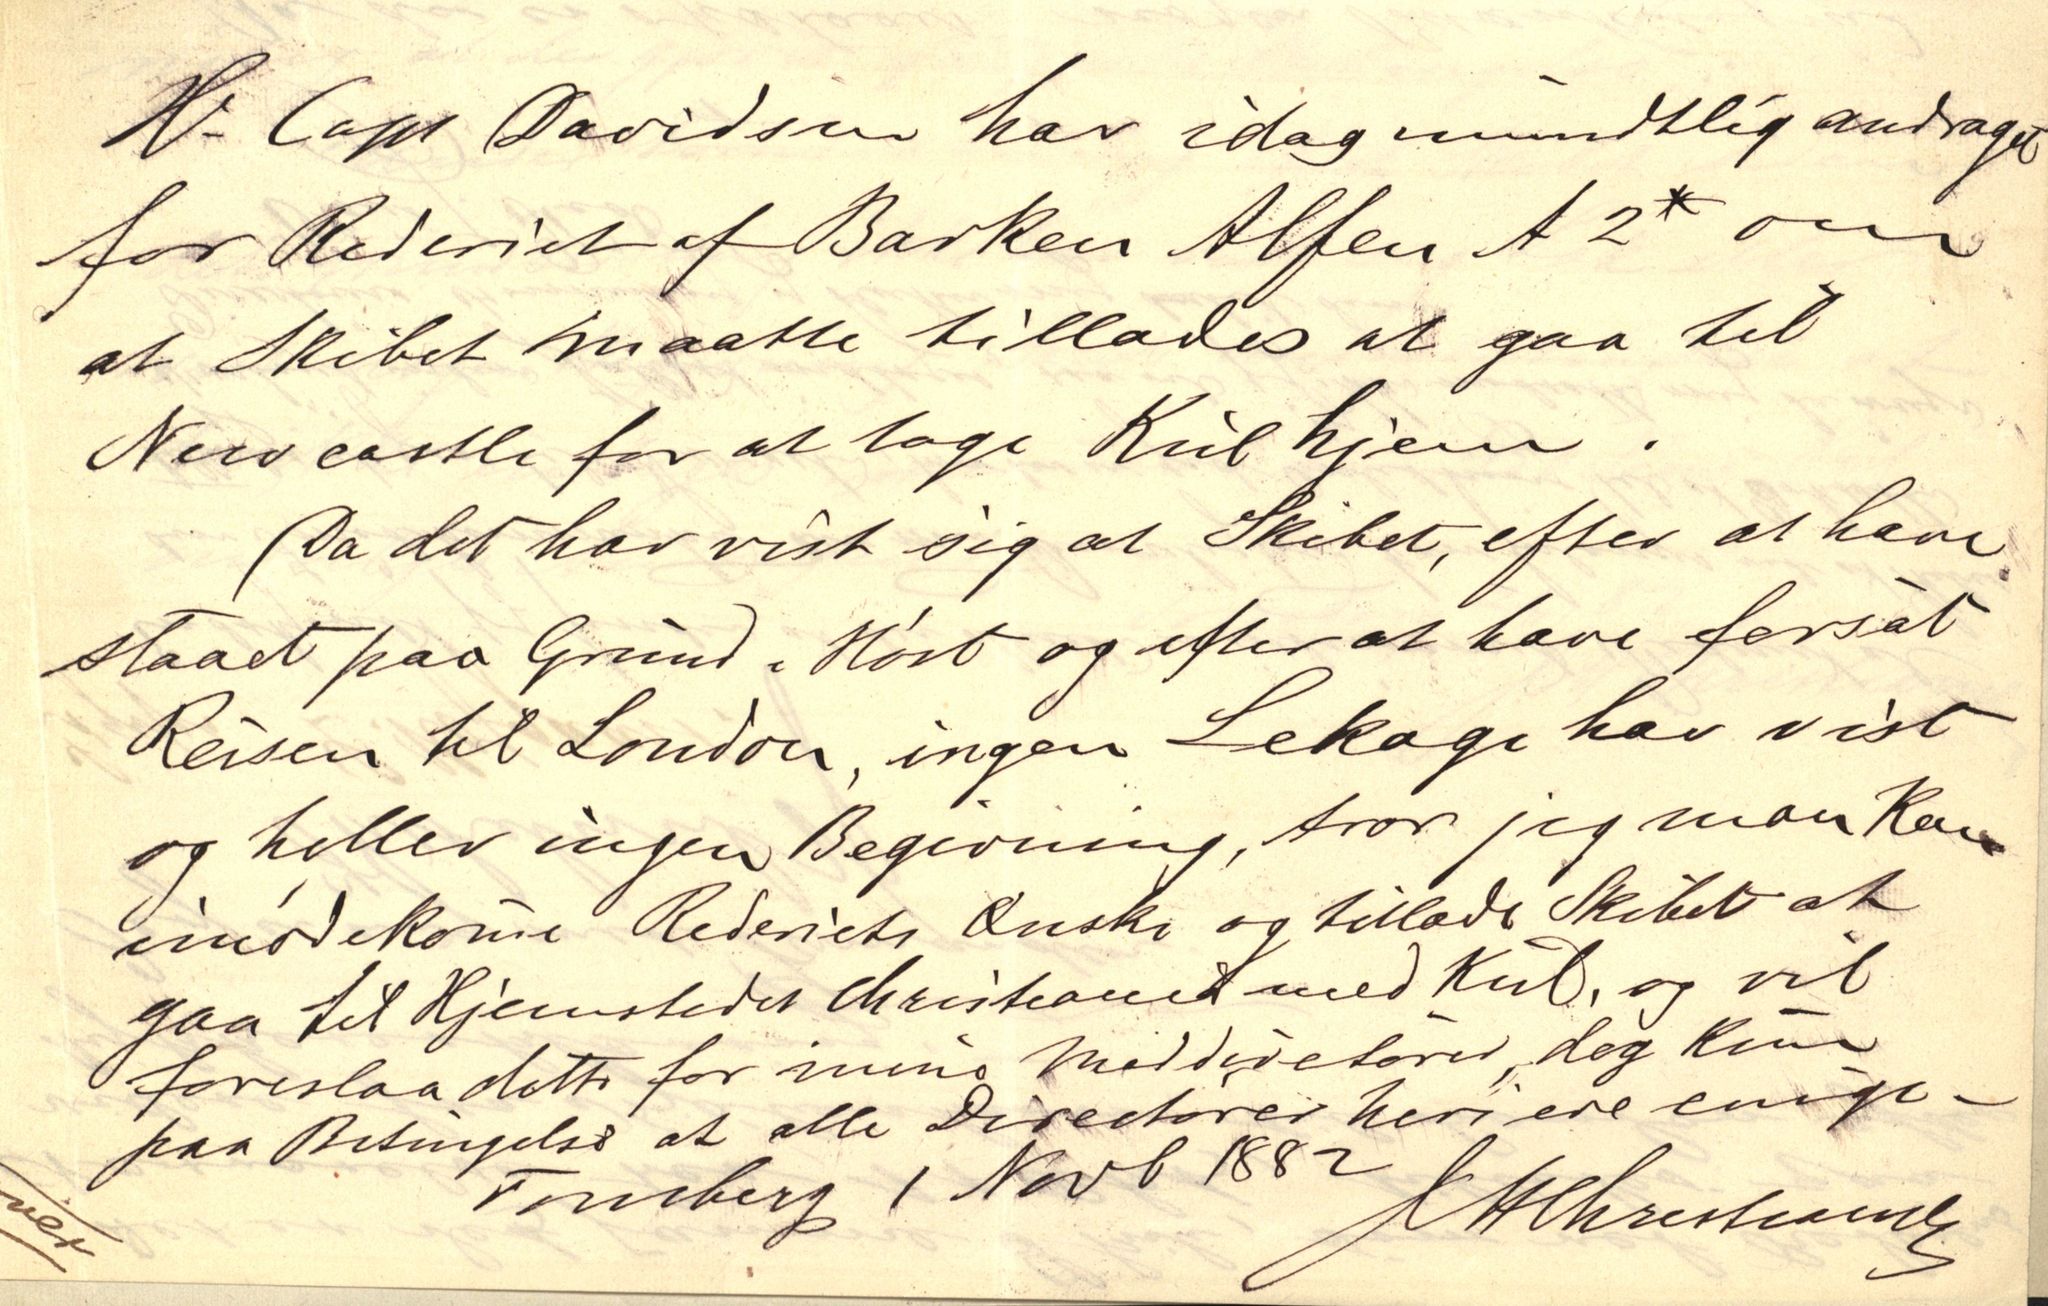 Hr Capt Davidsen har idag mundtlig andraget
for Rederiet af Barken Alfen A 2* om
at Skibet maatte tillades at gaa til
Newcastle for at tage Kul hjem.
Da det har vist sig at Skibet, efter at have
staaet paa Grund i Høst og efter at have forsat
Reisen til London, ingen Lekage har vist
og heller ingen Begivning, tror jeg man Kan
imødekom̄e Rederiets Ønske og tillade Skibet at
gaa til Hjemstedet Christiania med Kul, og vil
foreslaa dette for mine Meddirectører, dog Kun
paa Betingelse at alle Directører heri ere enige –
Tønsberg 1 Novb 1882